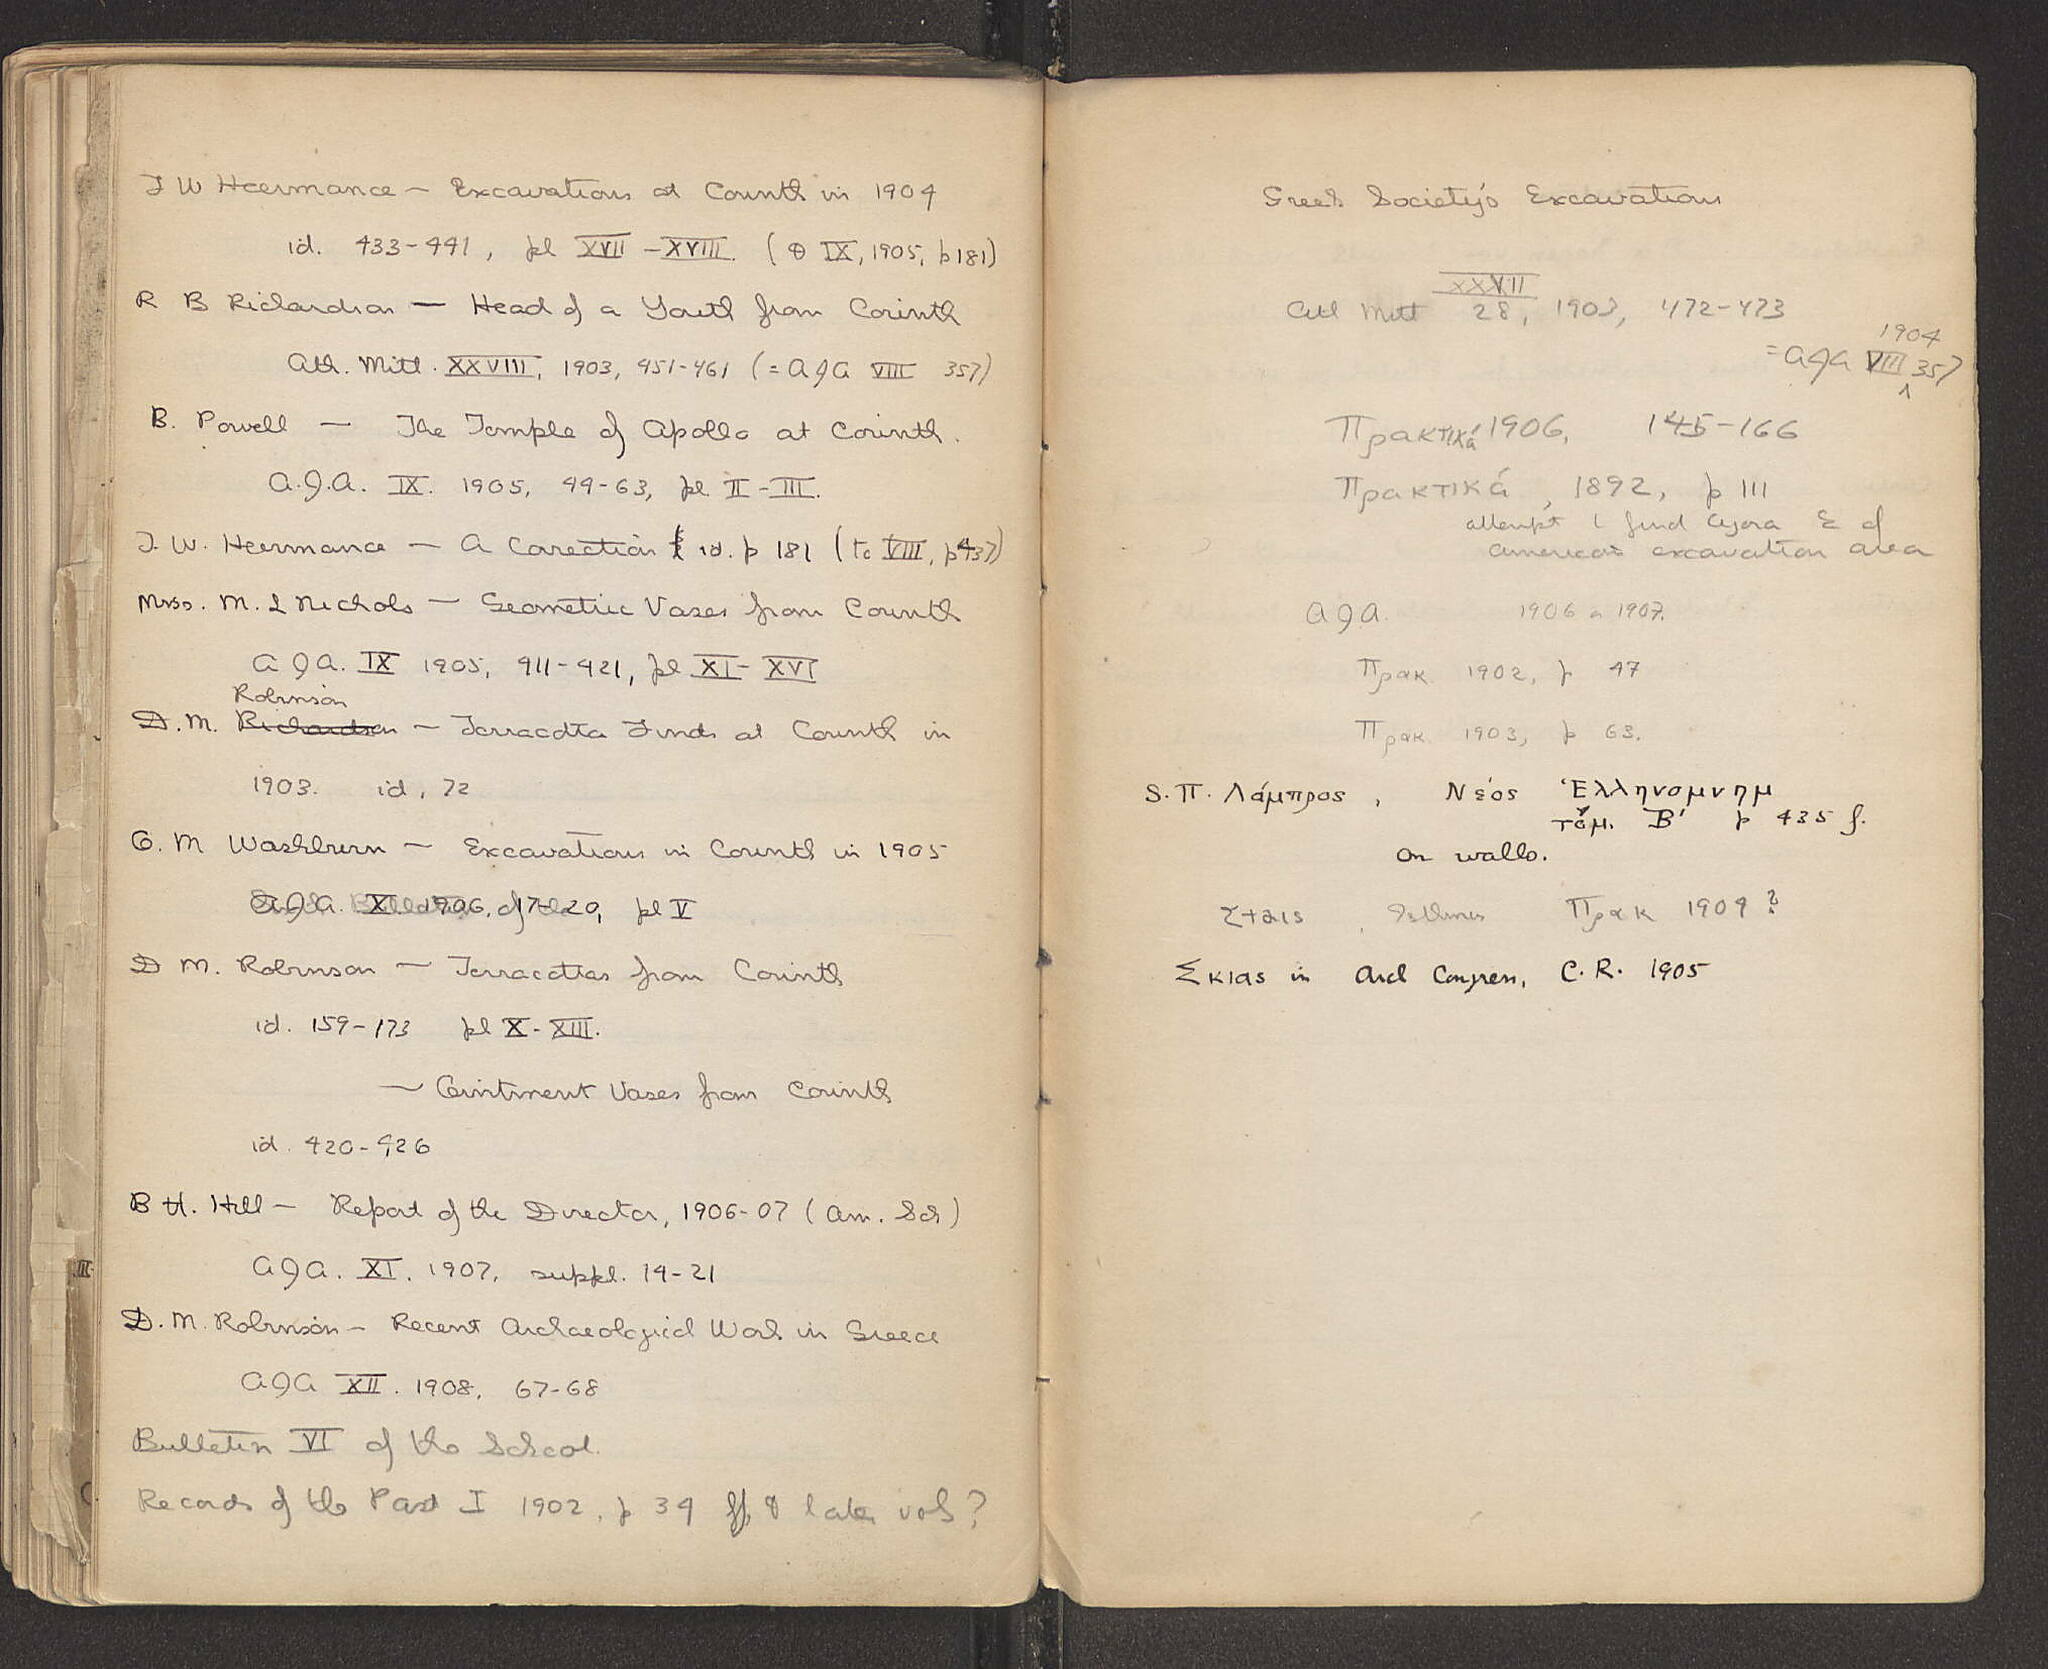 T W Heermance — Excavations at Corinth in 1904
id. 433-441, pl XVII - XVIII. (⊕ IX, 1905, p 181)
R B Richardson — Head of a Youth from Corinth
Ath. Mitt. XXVIII, 1903, 451-461 (= A J A VIII 357)
B. Powell — The Temple of Apollo at Corinth.
A.J.A. IX. 1905, 44-63, pl. II - III.
T. W. Heermance — A Correction id. p 181 (to VIII, p 437)
Mrso. M. L Nichols — Geometric Vases from Corinth
A J A. IX 1905, 411-421, pl XI - XVI
Robinson
D. M. Richardson — Terracotta Finds at Corinth in
1903. id, 72
O. M Washburn — Excavations in Corinth in 1905
A J A. X. 1906, 17-20, pl V
D M. Robinson — Terracottas from Corinth
id. 159-173 pl X - XIII.
— Ointment Vases from Corinth
id. 420-426
B H. Hill — Report of the Director, 1906-07 (Am. Sch)
A J A. XI. 1907, suppl. 14-21
D. M. Robinson — Recent Archaeological Work in Greece
A J A XII. 1908, 67-68
Bulletin VI of the School.
Records of the Past I 1902, p 34 ff, & later vols?
Greek Society's Excavations
XXVII
Ath Mitt 28, 1903, 472-473
1904
= A J A VIII 357
Πρακτικά 1906, 145-166
Πρακτικά, 1892, p 111
attempt to find Agora E of
American excavation area
A J A. 1906 or 1907.
Πρακ. 1902, p 47
Πρακ. 1903, p 63.
S. Π. Λάμπρος, Νέος Ἑλληνομνημ
τόμ. Β' p 435 f.
on walls.
Σταις, Isthmus Πρακ 1904?
Σκιας in Arch Congress, C. R. 1905